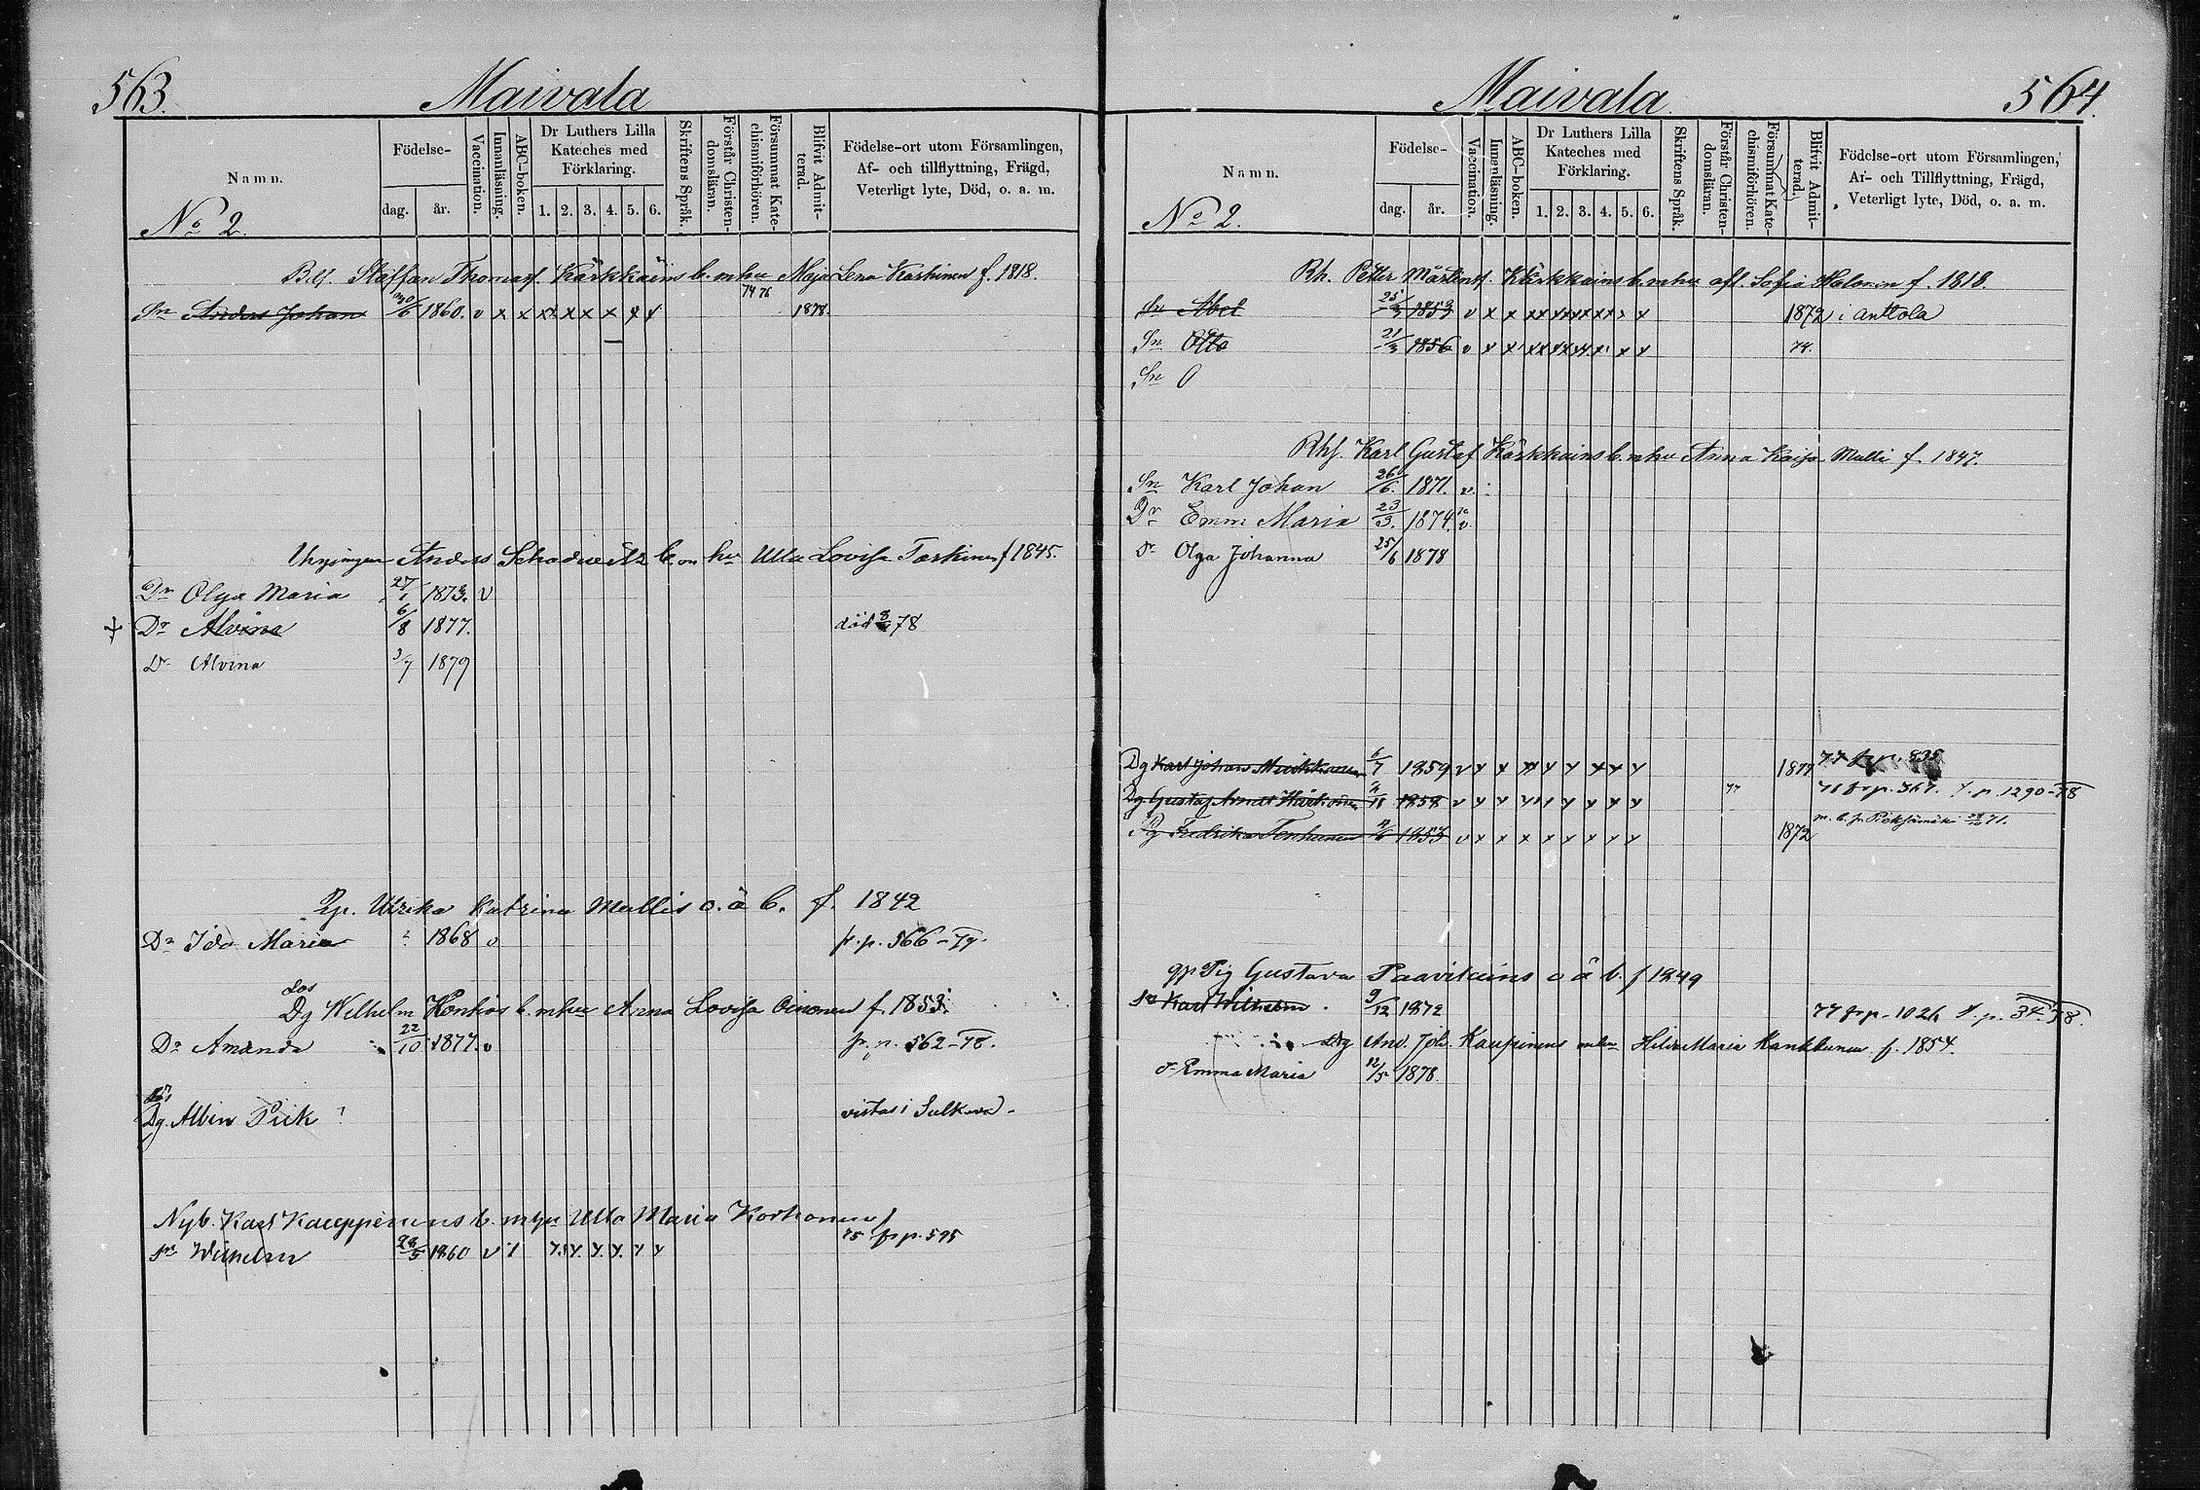 563.
Maivala
Namn.
No 2.
Födelse-
dag.
år.
Vaccination.
Innanläsning.
ABC-boken.
Dr Luthers Lilla
Kateches med
Förklaring.
1. 2. 3. 4. 5. 6.
Skriftens Språk.
Förstår Christen-
domsläran.
Försummat Kate-
chismiförhören.
Blifvit Admit-
terad.
Födelse-ort utom Församlingen,
Af- och tillflyttning, Frägd,
Veterligt lyte, Död, o. a. m.
Staffan Thomasf. Kärkkäins b. m hu Maja Lena f. 1818.
74 76
Sn Anders Johan 1860. v x x x x x x x x 1878.
Anders b. m hu Ulla Lovisa f 1845.
Dr Olga Maria 27/1 1873. v
Dr Alvina 6/8 1877. död 78
Dr Alvina 3/7 1879
Pp. Ulrika Katrina Mullis o. ä b. f. 1842
Dr Ida Maria 1868 v fr. p. 566-79.
Dg Wilhelm b. m hu Anna Lovisa Oinonen f. 1853.
Dr Amanda 22/10 1877. v fr. p. 562-78.
Dg. Albin Piik ? vistas i Sulkava
Nyb. Karl Kauppinens b. m hu Ulla Maria Korhonen f
75 fr p. 595
Sn Wilhelm 28/5 1860 v
564.
Maivala
Namn.
No 2.
Födelse-
dag.
år.
Vaccination.
Innanläsning.
ABC-boken.
Dr Luthers Lilla
Kateches med
Förklaring.
1. 2. 3. 4. 5. 6.
Skriftens Språk.
Förstår Christen-
domsläran.
Försummat Kate-
chismiförhören.
Blifvit Admit-
terad.
Födelse-ort utom Församlingen,
Af- och Tillflyttning, Frägd,
Veterligt lyte, Död, o. a. m.
Rh. Petter Mårtensf. Kärkkäins b. m hu afl. Sofia Halonen f. 1818.
Sn Abel 1853 v x x 1872 i Anttola
Sn Otto 21/3 1856 v x x 74.
Sn O
Rhf. Karl Gustaf Kärkkäins b. m hu Anna Kaisa Mulli f. 1847.
Sn Karl Johan 26/6. 1871. v.
Dr Emm Maria 23/3. 1874. v.
Dr Olga Johanna 25/6 1878
Dg Karl Johan 6/7 1859 v 1877 77 fr p. 835
Dg. Gustaf 1858 v fr p. 367. f. p. 1290-78
Pg Fredrika Tenhunen 1853 v 1872 m. b. fr. Pieksämäki 71.
Pig Gustava Paavilains o ä b. f 1849
Sn Karl Wilhelm 9/12 1872 77 fr p. 1026
Dg And. Joh. Kaupinens m hu Hilda Maria Kankkunen f. 1854.
Dr Emma Maria 12/5 1878.